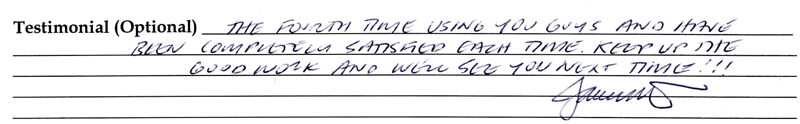 Testimonial (Optional) THE FOURTH TIME USING YOU GUYS AND HAVE
BEEN COMPLETELY SATISFIED EACH TIME. KEEP UP THE
GOOD WORK AND WE'LL SEE YOU NEXT TIME!!!